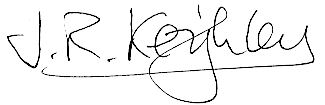 J.R. Keighley